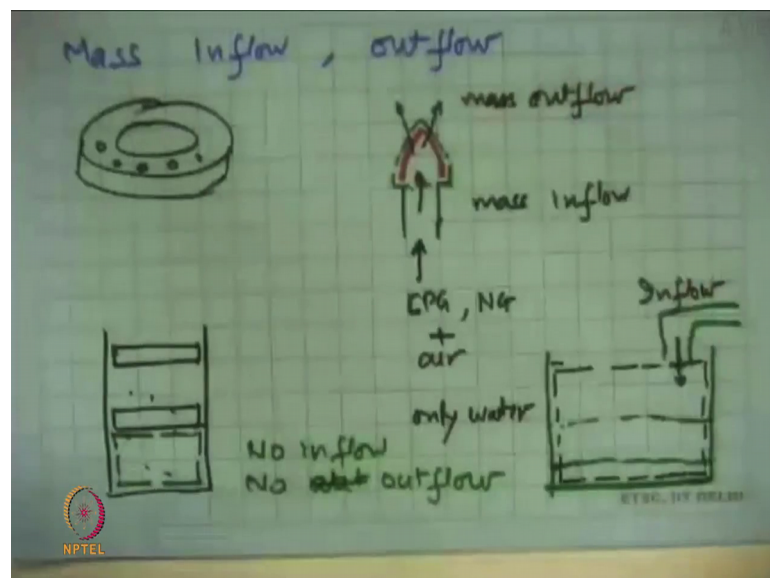 Mass Inflow , outflow
mass outflow
mass inflow
LPG , NG
+
air
Inflow
only water
No inflow
No outflow
ETSC, IIT DELHI
NPTEL